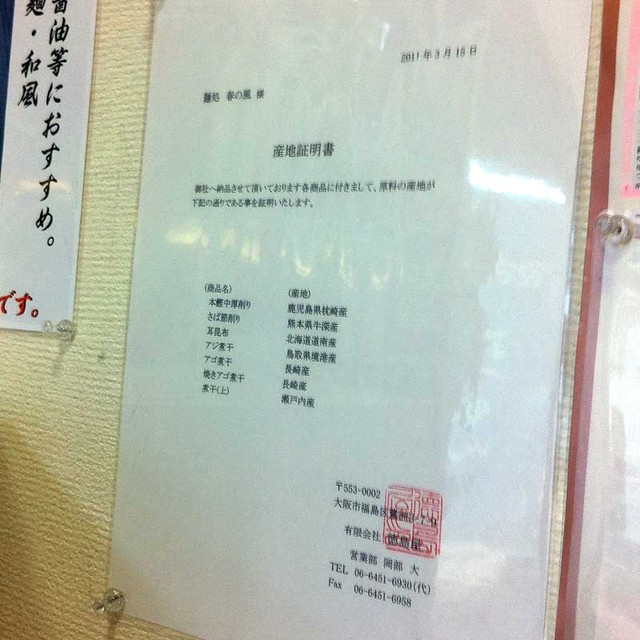 醤油等におすすめ。
麺・和風
です。
2011年3月15日
麺処 春の風 様
産地証明書
御社へ納品させて頂いております各商品に付きまして、原料の産地が
下記の通りである事を証明いたします。
(商品名) (産地)
本鰹中厚削り 鹿児島県枕崎産
さば節削り 熊本県牛深産
耳昆布 北海道道南産
アジ煮干 鳥取県境港産
アゴ煮干 長崎産
焼きアゴ煮干 長崎産
煮干(上) 瀬戸内産
〒553-0002
大阪市福島区鷺洲
有限会社
営業部 岡部 大
TEL 06-6451-6930(代)
Fax 06-6451-6958